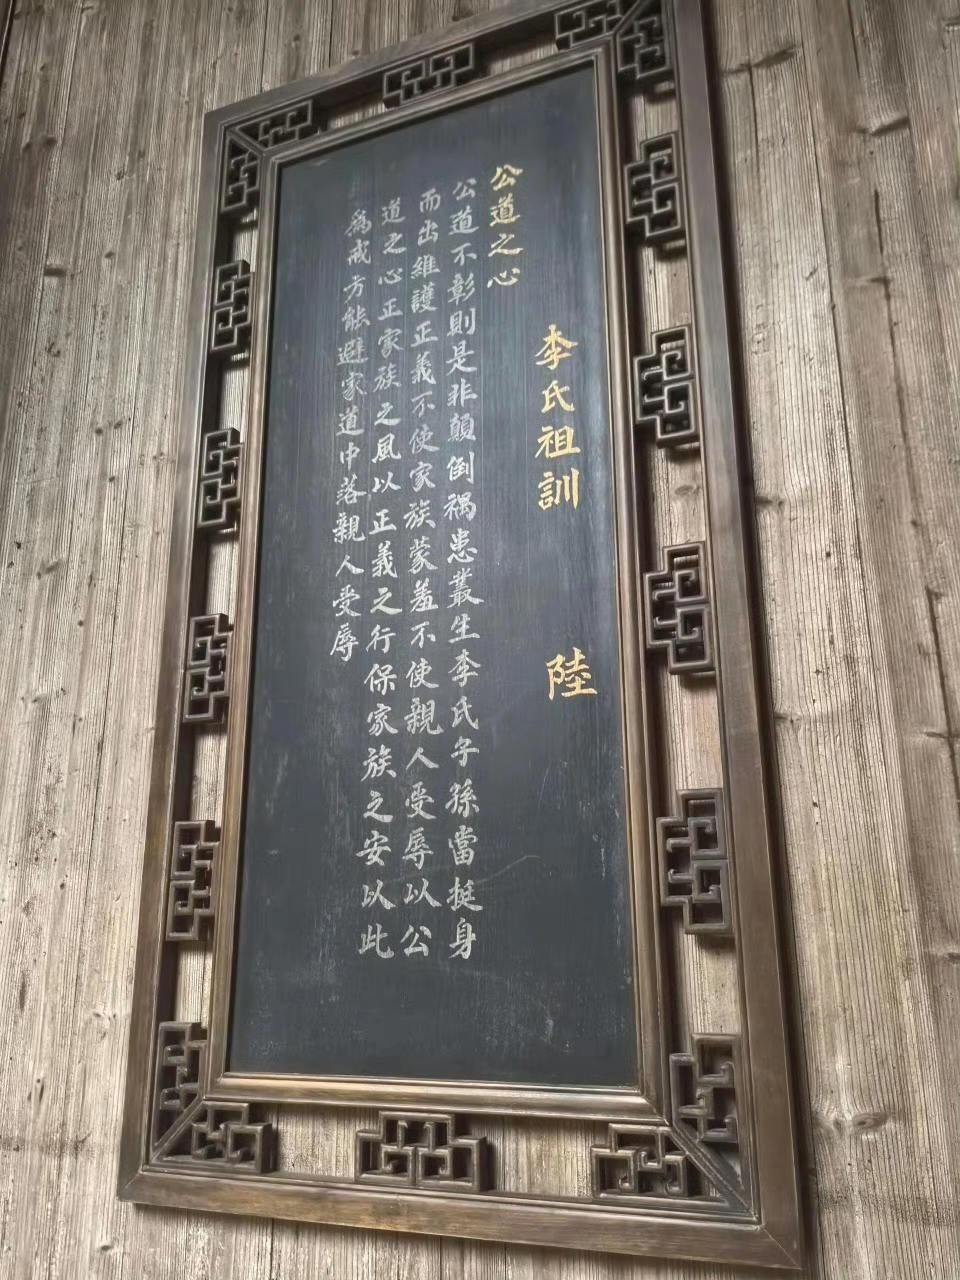 李氏祖訓 陸
公道之心
公道不彰則是非顛倒禍患叢生李氏子孫當挺身
而出維護正義不使家族蒙羞不使親人受辱以公
道之心正家族之風以正義之行保家族之安以此
為戒方能避家道中落親人受辱